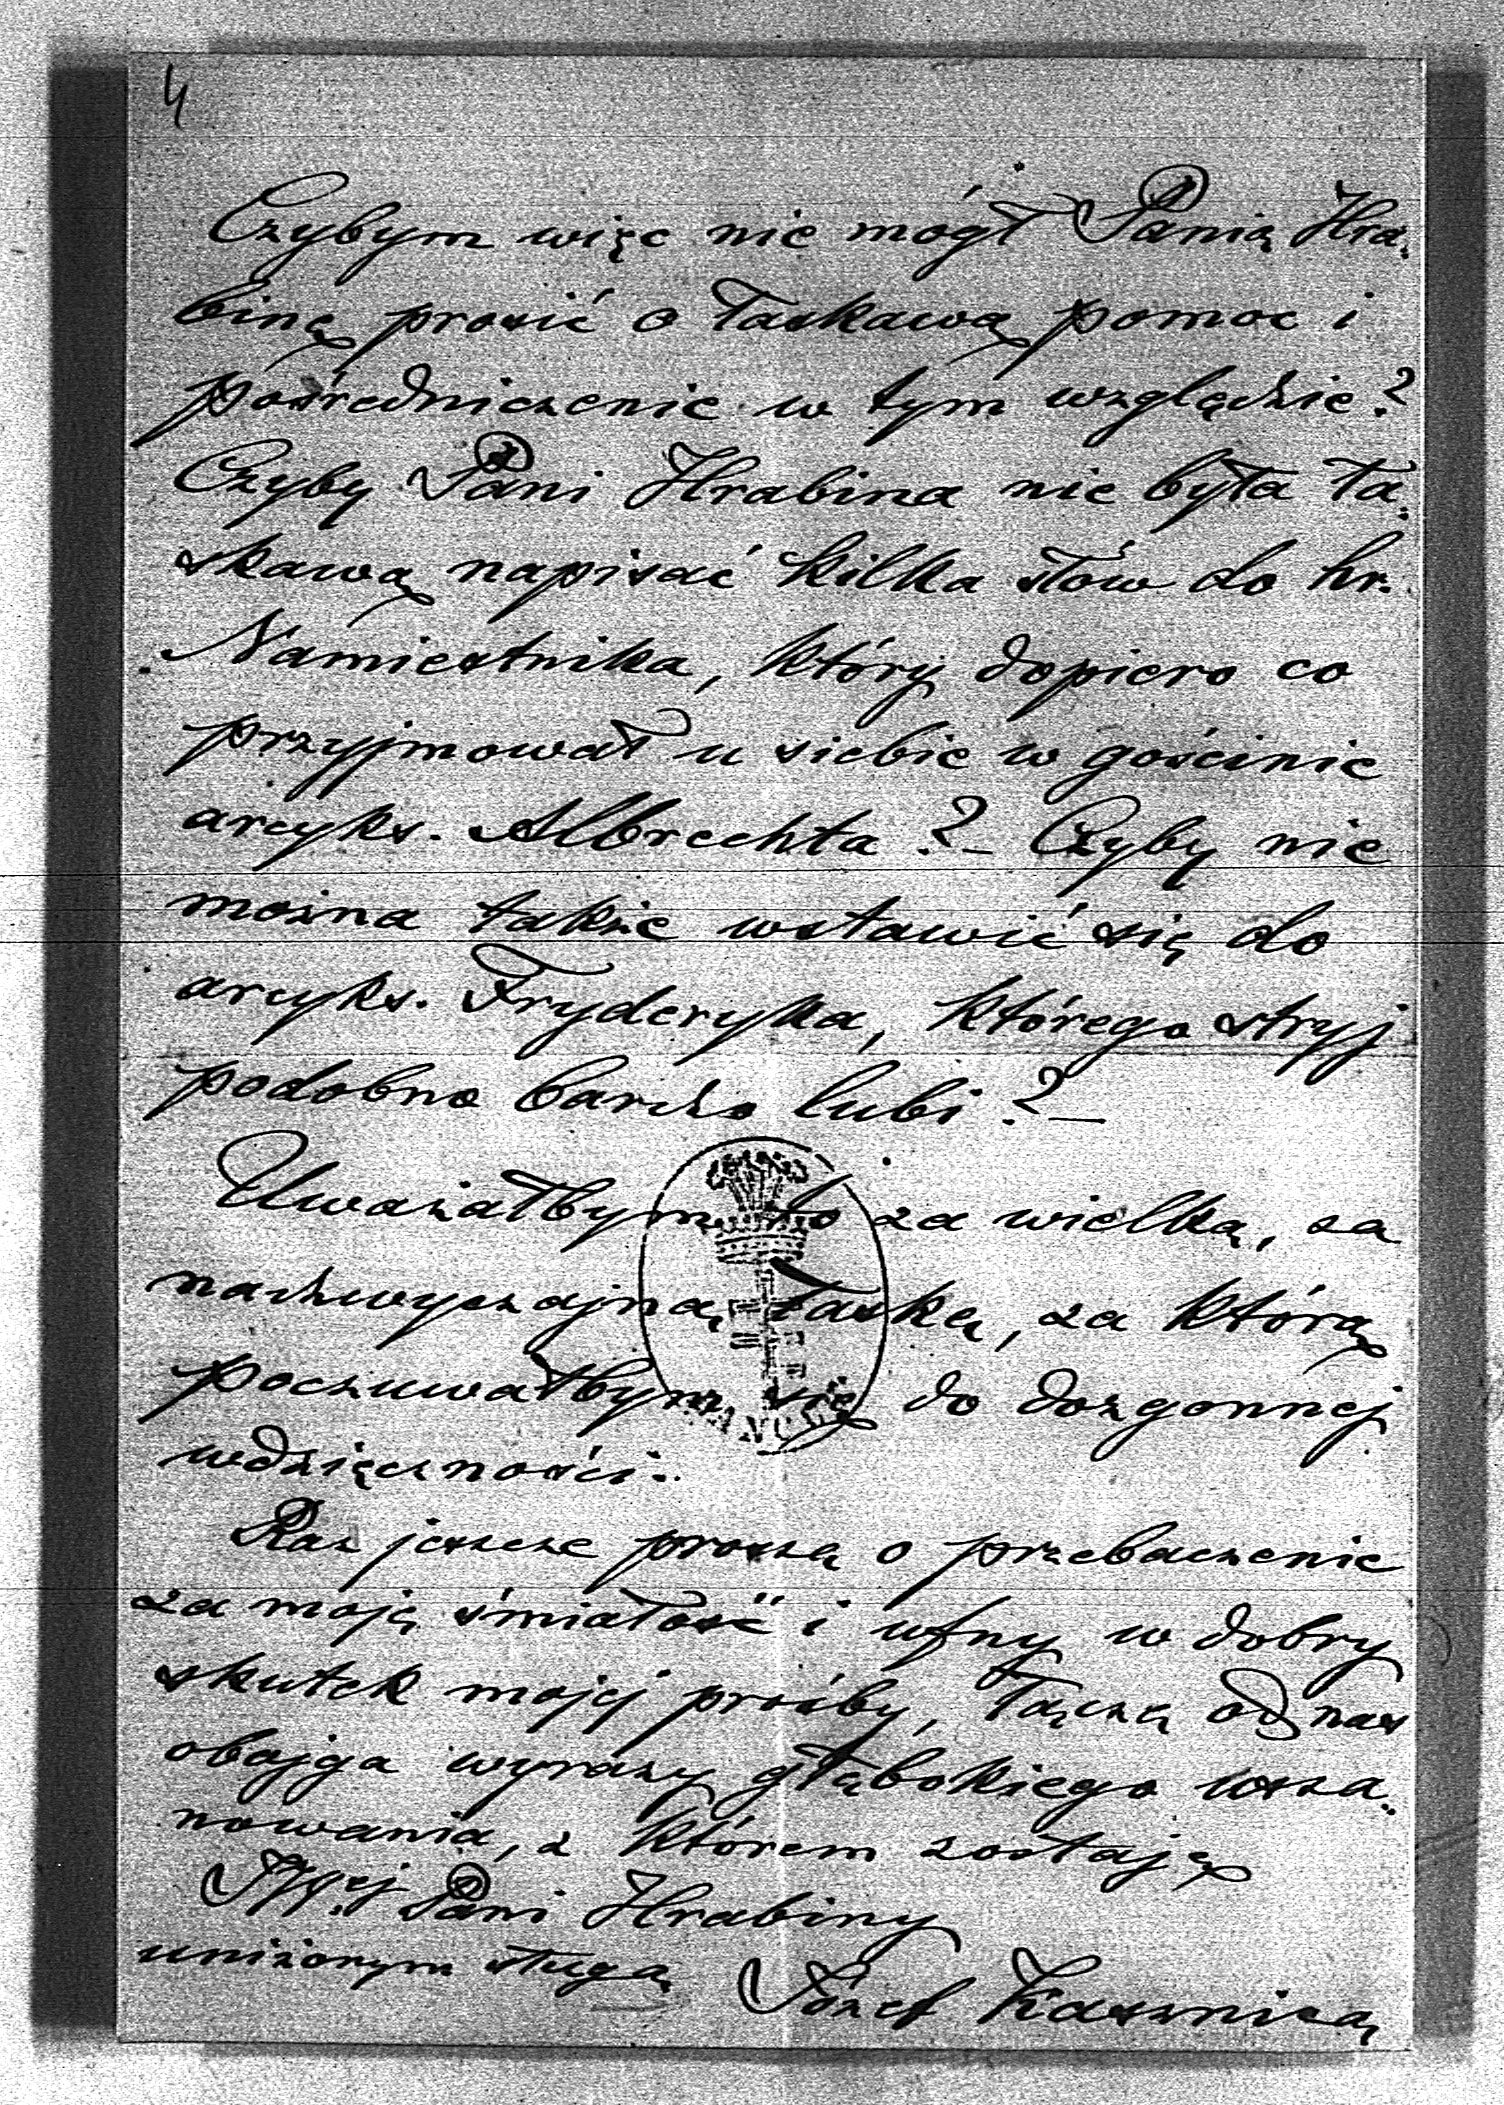 4
Czybym więc nie mógł Panią Hra-
binę prosić o łaskawą pomoc i
pośredniczenie w tym względzie?
Czyby Pani Hrabina nie była ła-
skawą napisać kilka słów do hr.
Namiestnika, który dopiero co
przyjmował u siebie w gościnie
arcyks. Albrechta? – Czyby nie
można także wstawić się do
arcyks. Fryderyka, którego stryj
podobno bardzo lubi? –
Uważałbym to za wielką, za
nadzwyczajną łaskę, za którą
poczuwałbym się do dozgonnej
wdzięczności.
Raz jeszcze proszę o przebaczenie
za moją śmiałość i ufny w dobry
skutek mojej prośby, łączę od nas
obojga wyrazy głębokiego usza-
nowania, z którem zostaję
JWej Pani Hrabiny
uniżonym sługą
Józef Kasznica